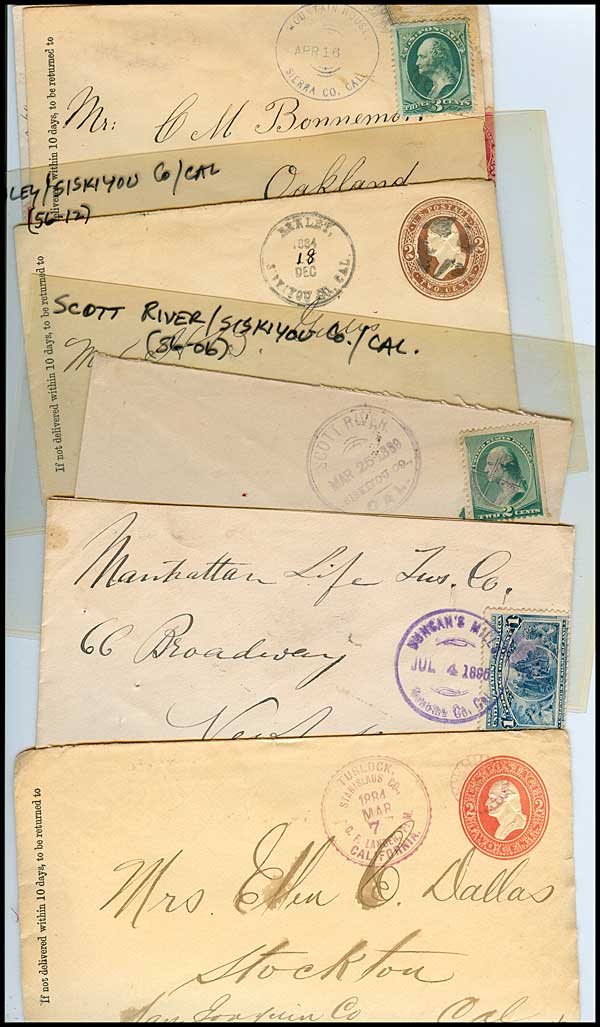 If not delivered within 10 days, to be returned to
MOUNTAIN HOUSE,
APR 16
SIERRA CO. CAL.
U.S. POSTAGE
THREE 3 CENTS
Mr. C M
Oakland
LEY/SISKIYOU CO/CAL
(56-12)
If not delivered within 10 days, to be returned to
1884
18
DEC
SISKIYOU CO. CAL.
U.S. POSTAGE
2 2
TWO CENTS
SCOTT RIVER/SISKIYOU CO./CAL.
(56-06)
SCOTT RIVER,
MAR 25 1889
SISKIYOU CO.,
CAL.
TWO 2 CENTS
Manhattan Life Ins. Co.
66 Broadway
DUNCAN'S MILLS
JUL 4 1895
SONOMA CO. CAL.
1
1
If not delivered within 10 days, to be returned to
TURLOCK,
STANISLAUS CO.,
1884
MAR
7
C. F. LANDER, P.M.
CALIFORNIA.
U.S. POSTAGE
2 2
Mrs. Ellen C. Dallas
Stockton
San Joaquin Co Cal